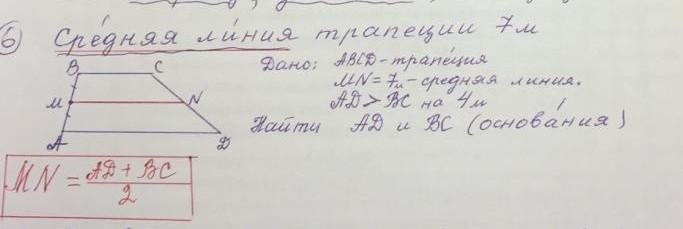 6) Сре́дняя ли́ния трапеции 7м
B C
M N
A D
Дано: ABCD - трапе́ция
MN = 7м - средняя линия.
AD > BC на 4м
Найти AD и BC (основа́ния)
MN = AD + BC
2